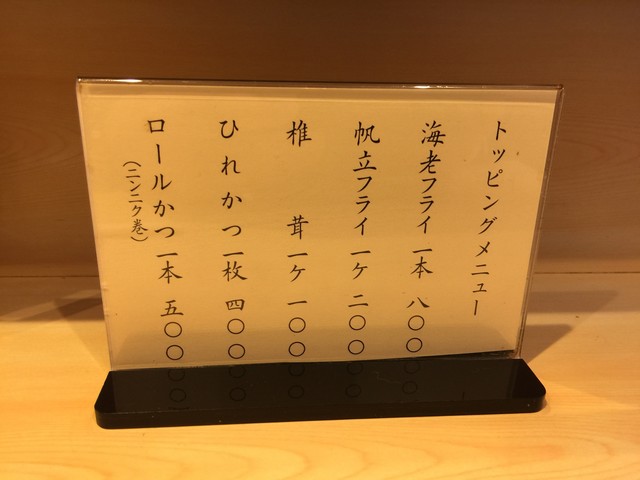 トッピングメニュー
海老フライ 一本 八〇〇
帆立フライ 一ケ 二〇〇
椎茸 一ケ 一〇〇
ひれかつ 一枚 四〇〇
ロールかつ 一本 五〇〇
(ニンニク巻)